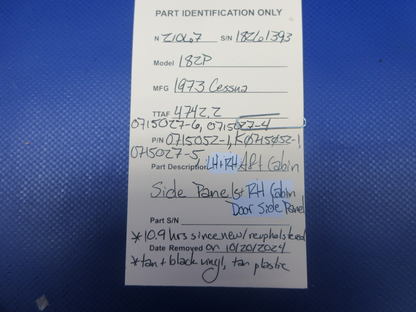 PART IDENTIFICATION ONLY
N 21067 S/N 18261393
Model 182P
MFG 1973 Cessna
TTAF 4742.2
0715027-6, 0715027-4
P/N 0715052-1, K0715052-1,
0715027-5
Part Description LH+RH Aft Cabin
Side Panels + RH Cabin
Door Side Panel
Part S/N
*10.9 hrs since new/reupholstered
Date Removed on 10/20/2024
*tan + black vinyl, tan plastic